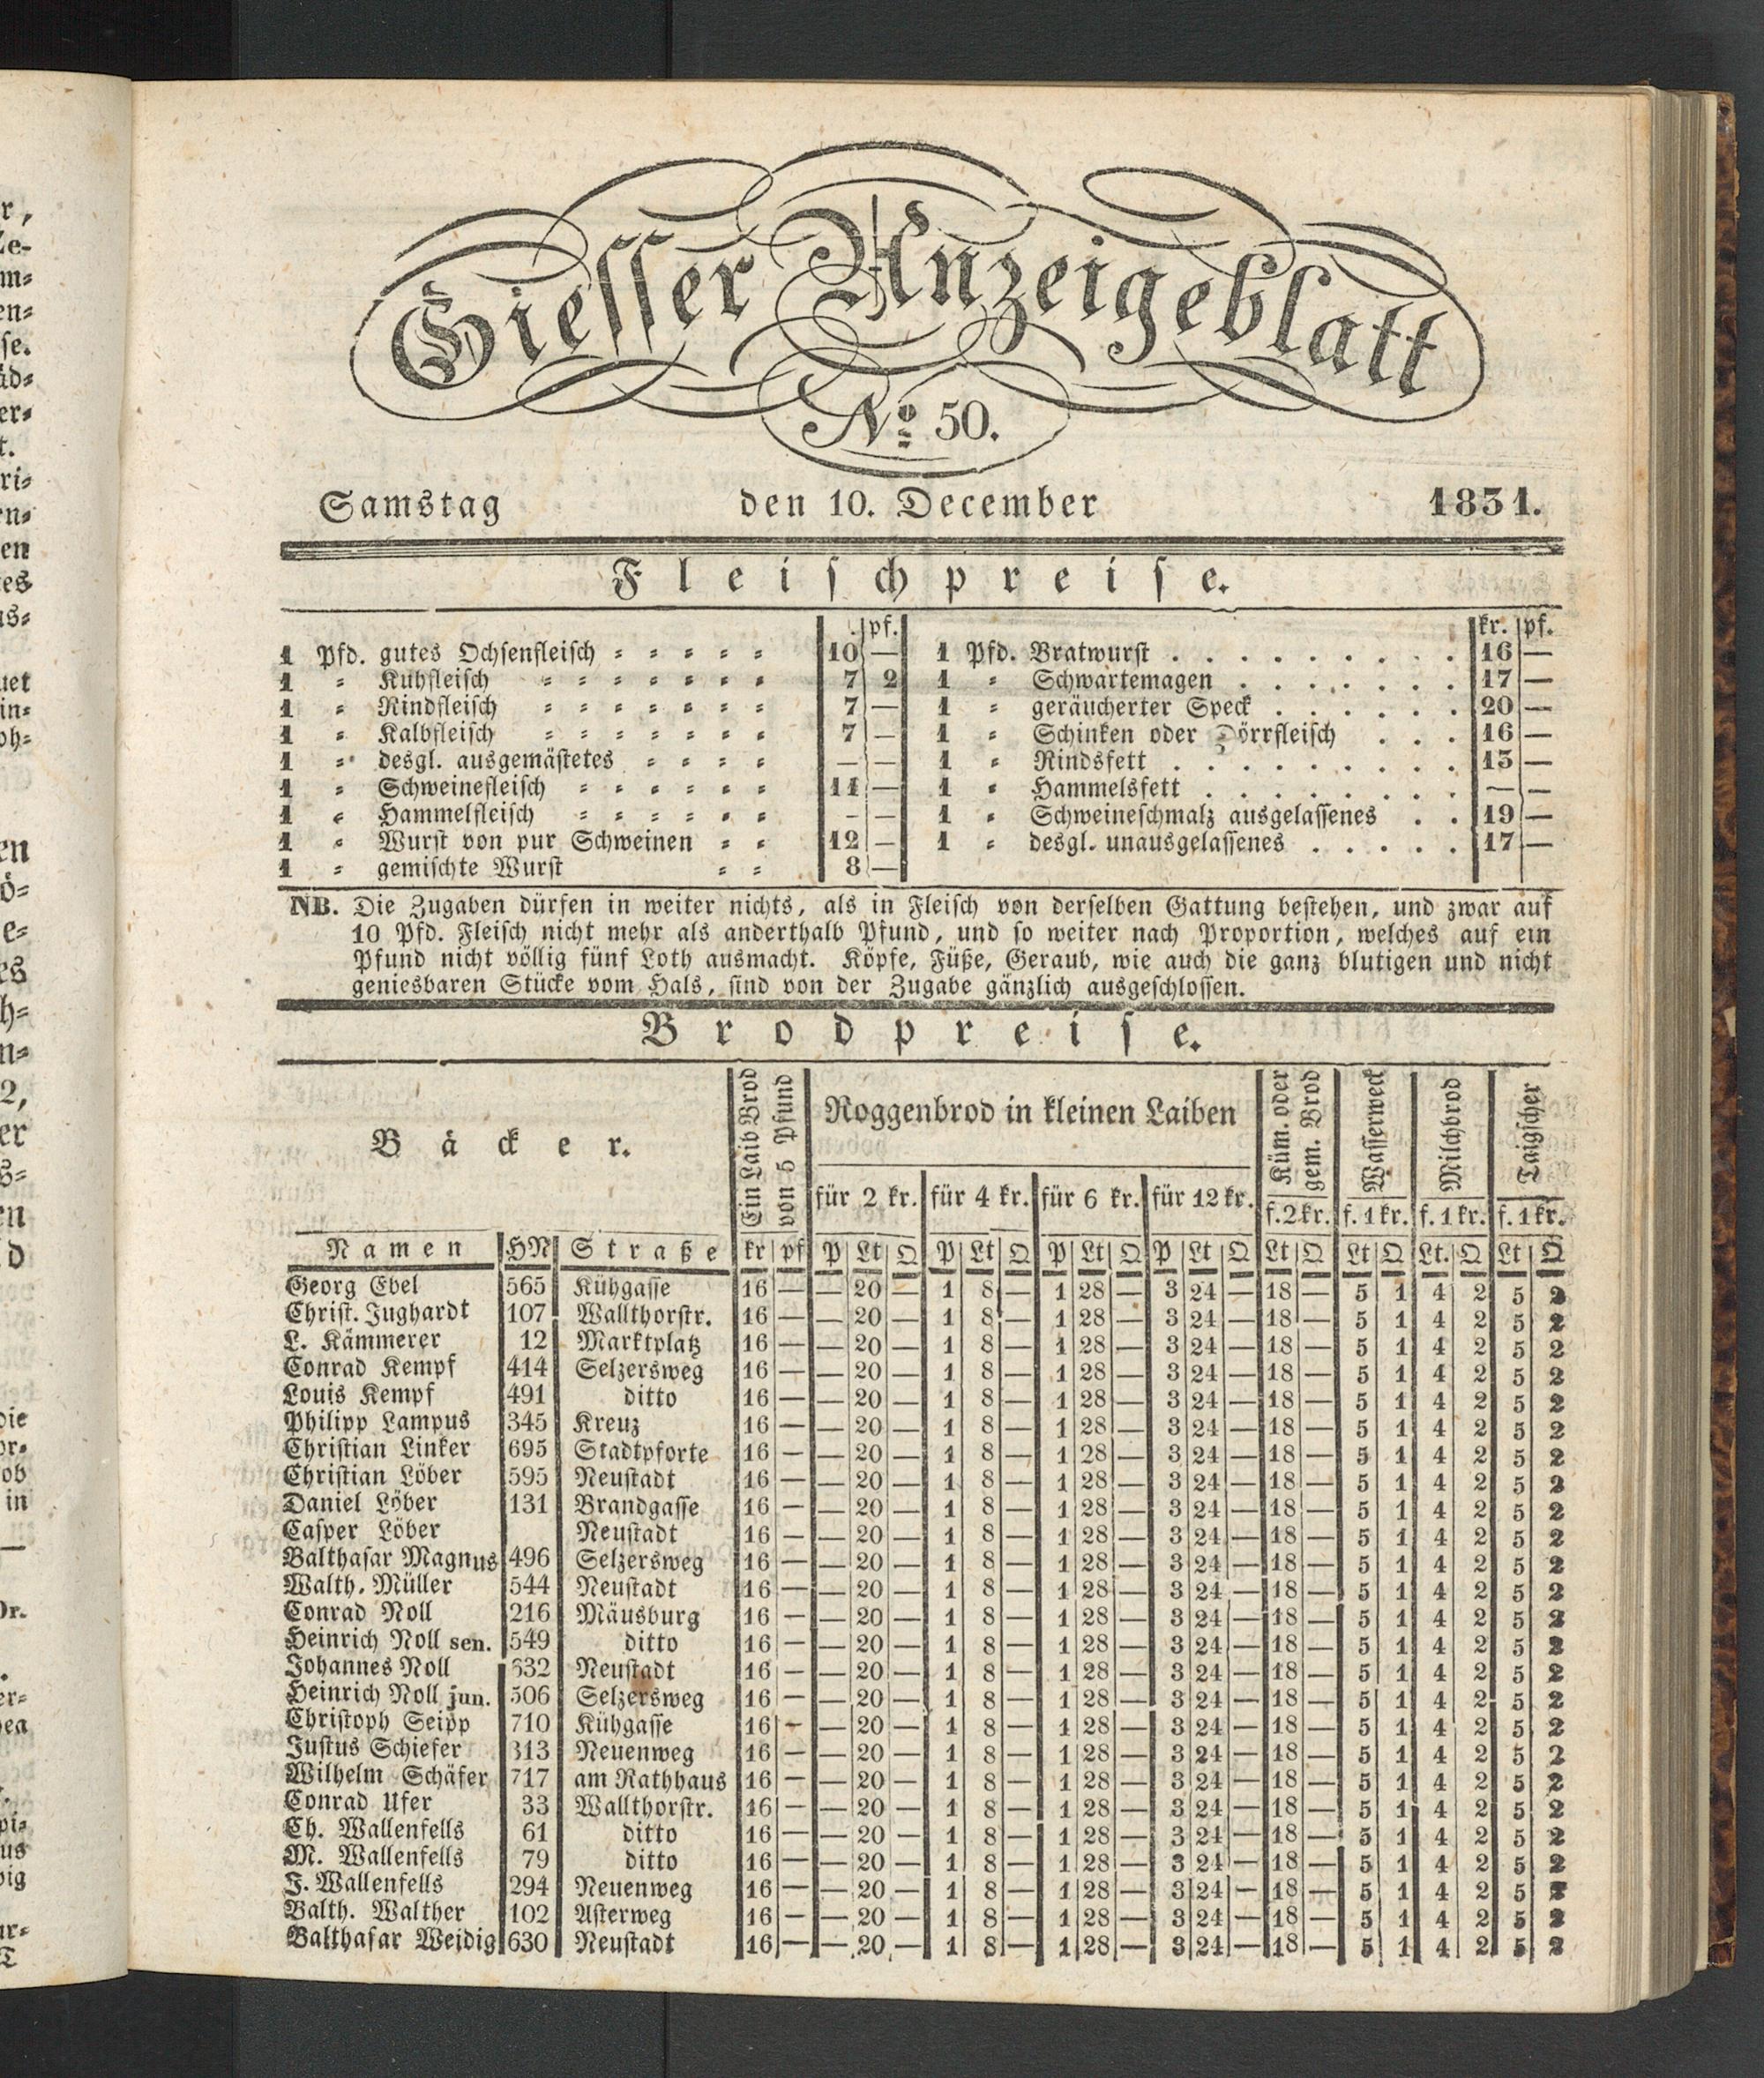 Giesser Anzeigeblatt
No 50.
Samstag den 10. December 1831.
Fleischpreise.
pf. kr. pf.
1 Pfd. gutes Ochsenfleisch 10 —
1 " Kuhfleisch 7 2
1 " Rindfleisch 7 —
1 " Kalbfleisch 7 —
1 " desgl. ausgemästetes — —
1 " Schweinefleisch 11 —
1 " Hammelfleisch — —
1 " Wurst von pur Schweinen 12 —
1 " gemischte Wurst 8 —
1 Pfd. Bratwurst 16 —
1 " Schwartemagen 17 —
1 " geräucherter Speck 20 —
1 " Schinken oder Dörrfleisch 16 —
1 " Rindsfett 13 —
1 " Hammelsfett — —
1 " Schweineschmalz ausgelassenes 19 —
1 " desgl. unausgelassenes 17 —
NB. Die Zugaben dürfen in weiter nichts, als in Fleisch von derselben Gattung bestehen, und zwar auf
10 Pfd. Fleisch nicht mehr als anderthalb Pfund, und so weiter nach Proportion, welches auf ein
Pfund nicht völlig fünf Loth ausmacht. Köpfe, Füße, Geraub, wie auch die ganz blutigen und nicht
geniesbaren Stücke vom Hals, sind von der Zugabe gänzlich ausgeschlossen.
Brodpreise.
Bäcker. Ein Laib Brod von 5 Pfund Roggenbrod in kleinen Laiben Küm. oder gem. Brod Wasserweck Milchbrod Taigscher
für 2 kr. für 4 kr. für 6 kr. für 12 kr. f. 2 kr. f. 1 kr. f. 1 kr. f. 1 kr.
Namen HN Straße kr pf P Lt Q P Lt Q P Lt Q P Lt Q Lt Q Lt Q Lt. Q Lt Q
Georg Ebel 565 Kühgasse 16 — — 20 — 1 8 — 1 28 — 3 24 — 18 — 5 1 4 2 5 2
Christ. Jughardt 107 Wallthorstr. 16 — — 20 — 1 8 — 1 28 — 3 24 — 18 — 5 1 4 2 5 2
L. Kämmerer 12 Marktplatz 16 — — 20 — 1 8 — 1 28 — 3 24 — 18 — 5 1 4 2 5 2
Conrad Kempf 414 Selzersweg 16 — — 20 — 1 8 — 1 28 — 3 24 — 18 — 5 1 4 2 5 2
Louis Kempf 491 ditto 16 — — 20 — 1 8 — 1 28 — 3 24 — 18 — 5 1 4 2 5 2
Philipp Lampus 345 Kreuz 16 — — 20 — 1 8 — 1 28 — 3 24 — 18 — 5 1 4 2 5 2
Christian Linker 695 Stadtpforte 16 — — 20 — 1 8 — 1 28 — 3 24 — 18 — 5 1 4 2 5 2
Christian Löber 595 Neustadt 16 — — 20 — 1 8 — 1 28 — 3 24 — 18 — 5 1 4 2 5 2
Daniel Löber 131 Brandgasse 16 — — 20 — 1 8 — 1 28 — 3 24 — 18 — 5 1 4 2 5 2
Casper Löber Neustadt 16 — — 20 — 1 8 — 1 28 — 3 24 — 18 — 5 1 4 2 5 2
Balthasar Magnus 496 Selzersweg 16 — — 20 — 1 8 — 1 28 — 3 24 — 18 — 5 1 4 2 5 2
Walth. Müller 544 Neustadt 16 — — 20 — 1 8 — 1 28 — 3 24 — 18 — 5 1 4 2 5 2
Conrad Noll 216 Mäusburg 16 — — 20 — 1 8 — 1 28 — 3 24 — 18 — 5 1 4 2 5 2
Heinrich Noll sen. 549 ditto 16 — — 20 — 1 8 — 1 28 — 3 24 — 18 — 5 1 4 2 5 2
Johannes Noll 632 Neustadt 16 — — 20 — 1 8 — 1 28 — 3 24 — 18 — 5 1 4 2 5 2
Heinrich Noll jun. 506 Selzersweg 16 — — 20 — 1 8 — 1 28 — 3 24 — 18 — 5 1 4 2 5 2
Christoph Seipp 710 Kühgasse 16 — — 20 — 1 8 — 1 28 — 3 24 — 18 — 5 1 4 2 5 2
Justus Schiefer 313 Neuenweg 16 — — 20 — 1 8 — 1 28 — 3 24 — 18 — 5 1 4 2 5 2
Wilhelm Schäfer 717 am Rathhaus 16 — — 20 — 1 8 — 1 28 — 3 24 — 18 — 5 1 4 2 5 2
Conrad Ufer 33 Wallthorstr. 16 — — 20 — 1 8 — 1 28 — 3 24 — 18 — 5 1 4 2 5 2
Ch. Wallenfells 61 ditto 16 — — 20 — 1 8 — 1 28 — 3 24 — 18 — 5 1 4 2 5 2
M. Wallenfells 79 ditto 16 — — 20 — 1 8 — 1 28 — 3 24 — 18 — 5 1 4 2 5 2
J. Wallenfells 294 Neuenweg 16 — — 20 — 1 8 — 1 28 — 3 24 — 18 — 5 1 4 2 5 2
Balth. Walther 102 Asterweg 16 — — 20 — 1 8 — 1 28 — 3 24 — 18 — 5 1 4 2 5 2
Balthasar Weidig 630 Neustadt 16 — — 20 — 1 8 — 1 28 — 3 24 — 18 — 5 1 4 2 5 2